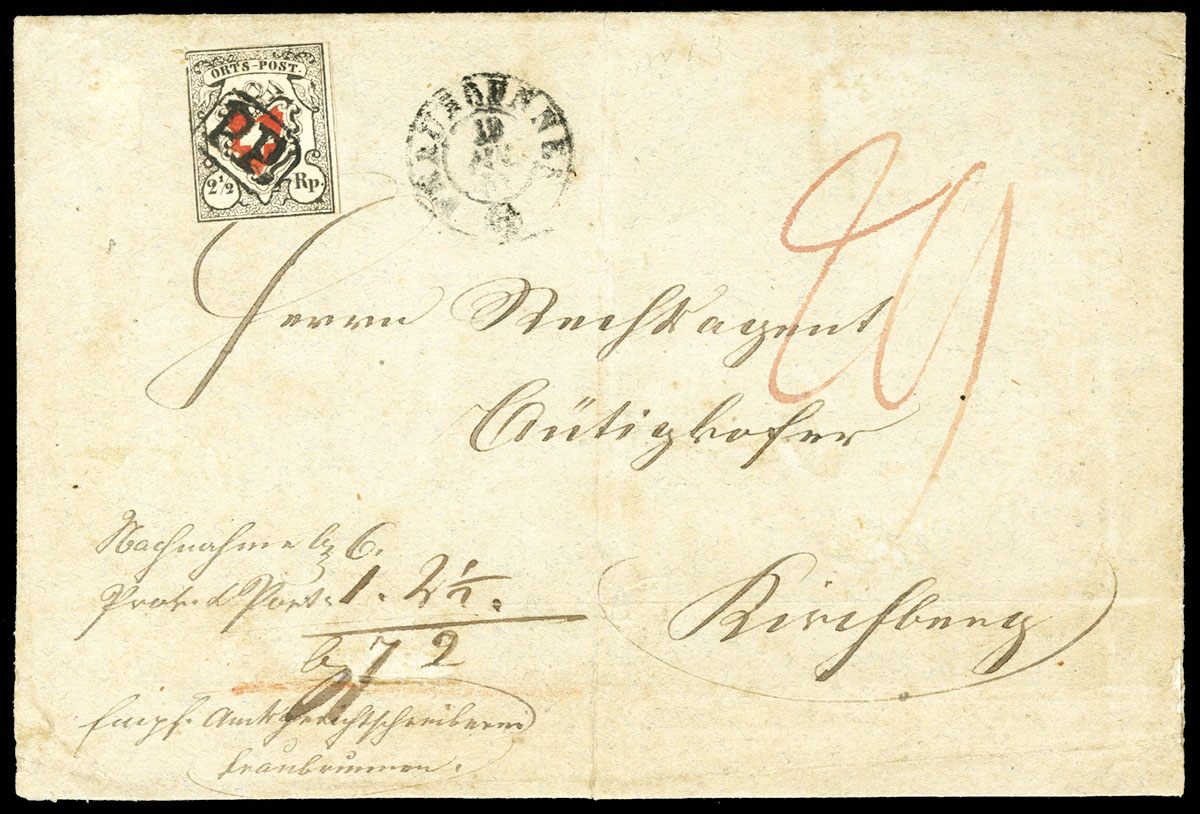 ORTS-POST.
PP
2½ Rp.
FRAUBRUNNEN
19
Herrn Rechtsagent
Bütigkofer
Kirchberg
Nachnahme bz 6.
Prov. & Port. 1. 2½.
bz 7 2
Empf. Amtsgerichtschreiberei
Fraubrunnen.